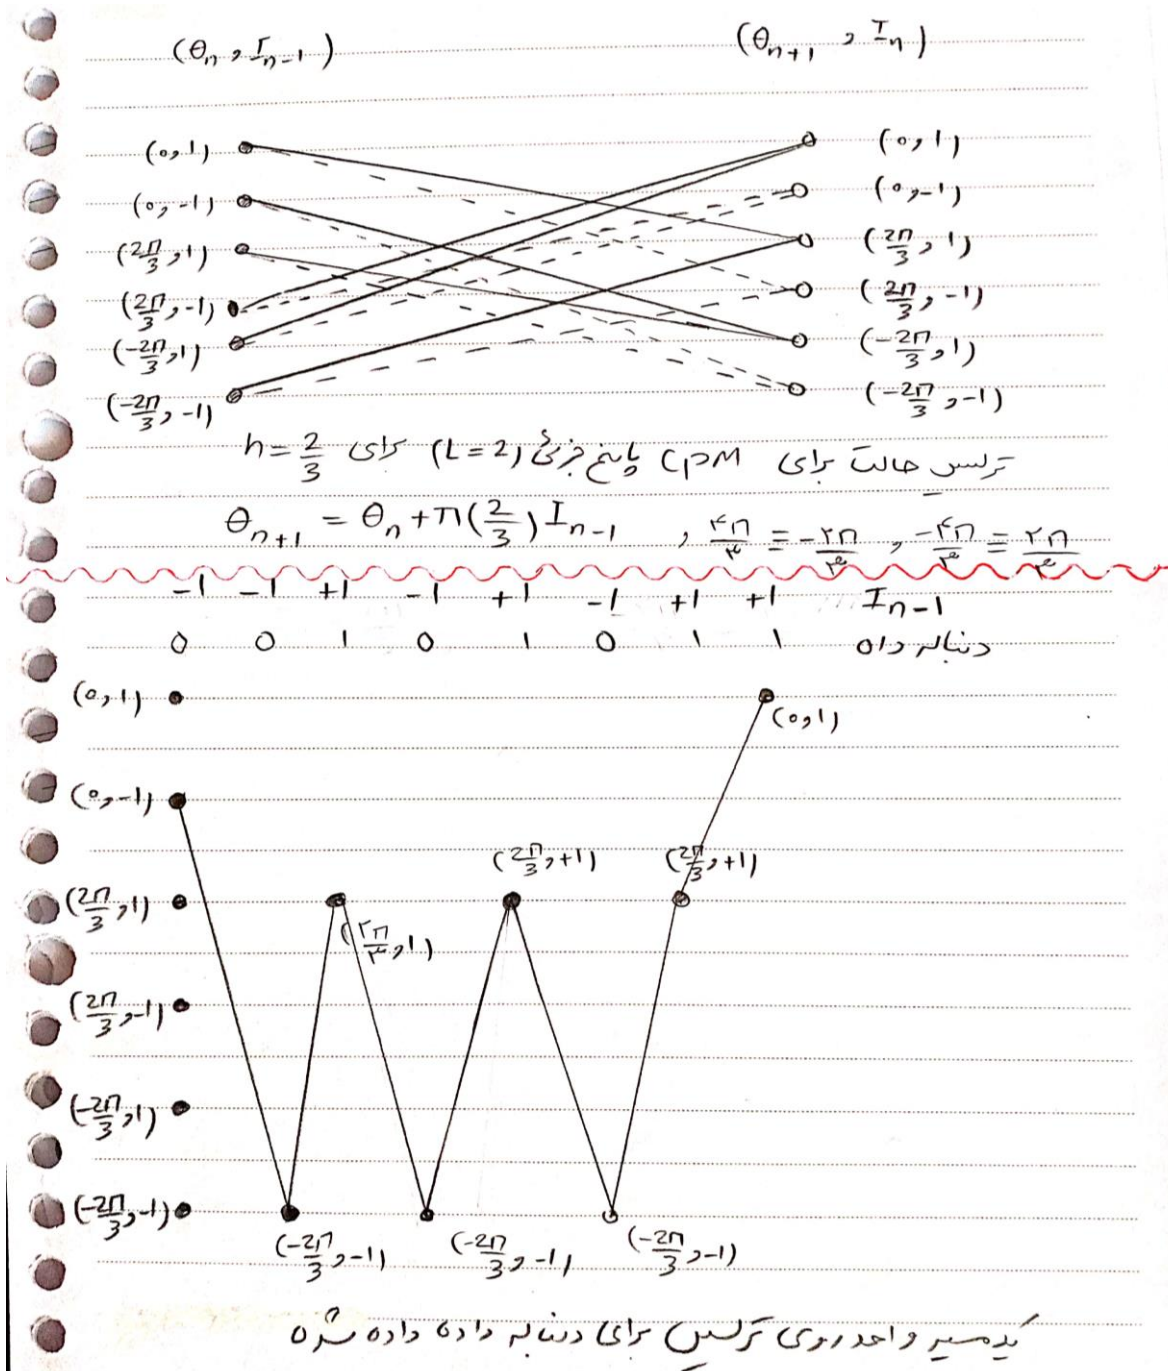 (θₙ , Iₙ₋₁) (θₙ₊₁ , Iₙ)
(0,1) (0,1)
(0,-1) (0,-1)
(2π/3,1) (2π/3,1)
(2π/3,-1) (2π/3,-1)
(-2π/3,1) (-2π/3,1)
(-2π/3,-1) (-2π/3,-1)
ترلیس حالت برای CPM پاسخ جزئی (L=2) برای h=2/3
θₙ₊₁ = θₙ + π(2/3)Iₙ₋₁ , ۴π/۳ ≡ -۲π/۳ , -۴π/۳ ≡ ۲π/۳
-1 -1 +1 -1 +1 -1 +1 +1 Iₙ₋₁
0 0 1 0 1 0 1 1 دنباله داده
(0,1) (0,1)
(0,-1)
(2π/3,+1) (2π/3,+1)
(2π/3,1) (۲π/۳,1)
(2π/3,-1)
(-2π/3,1)
(-2π/3,-1)
(-2π/3,-1) (-2π/3,-1) (-2π/3,-1)
یک مسیر واحد روی ترلیس برای دنباله داده داده شده